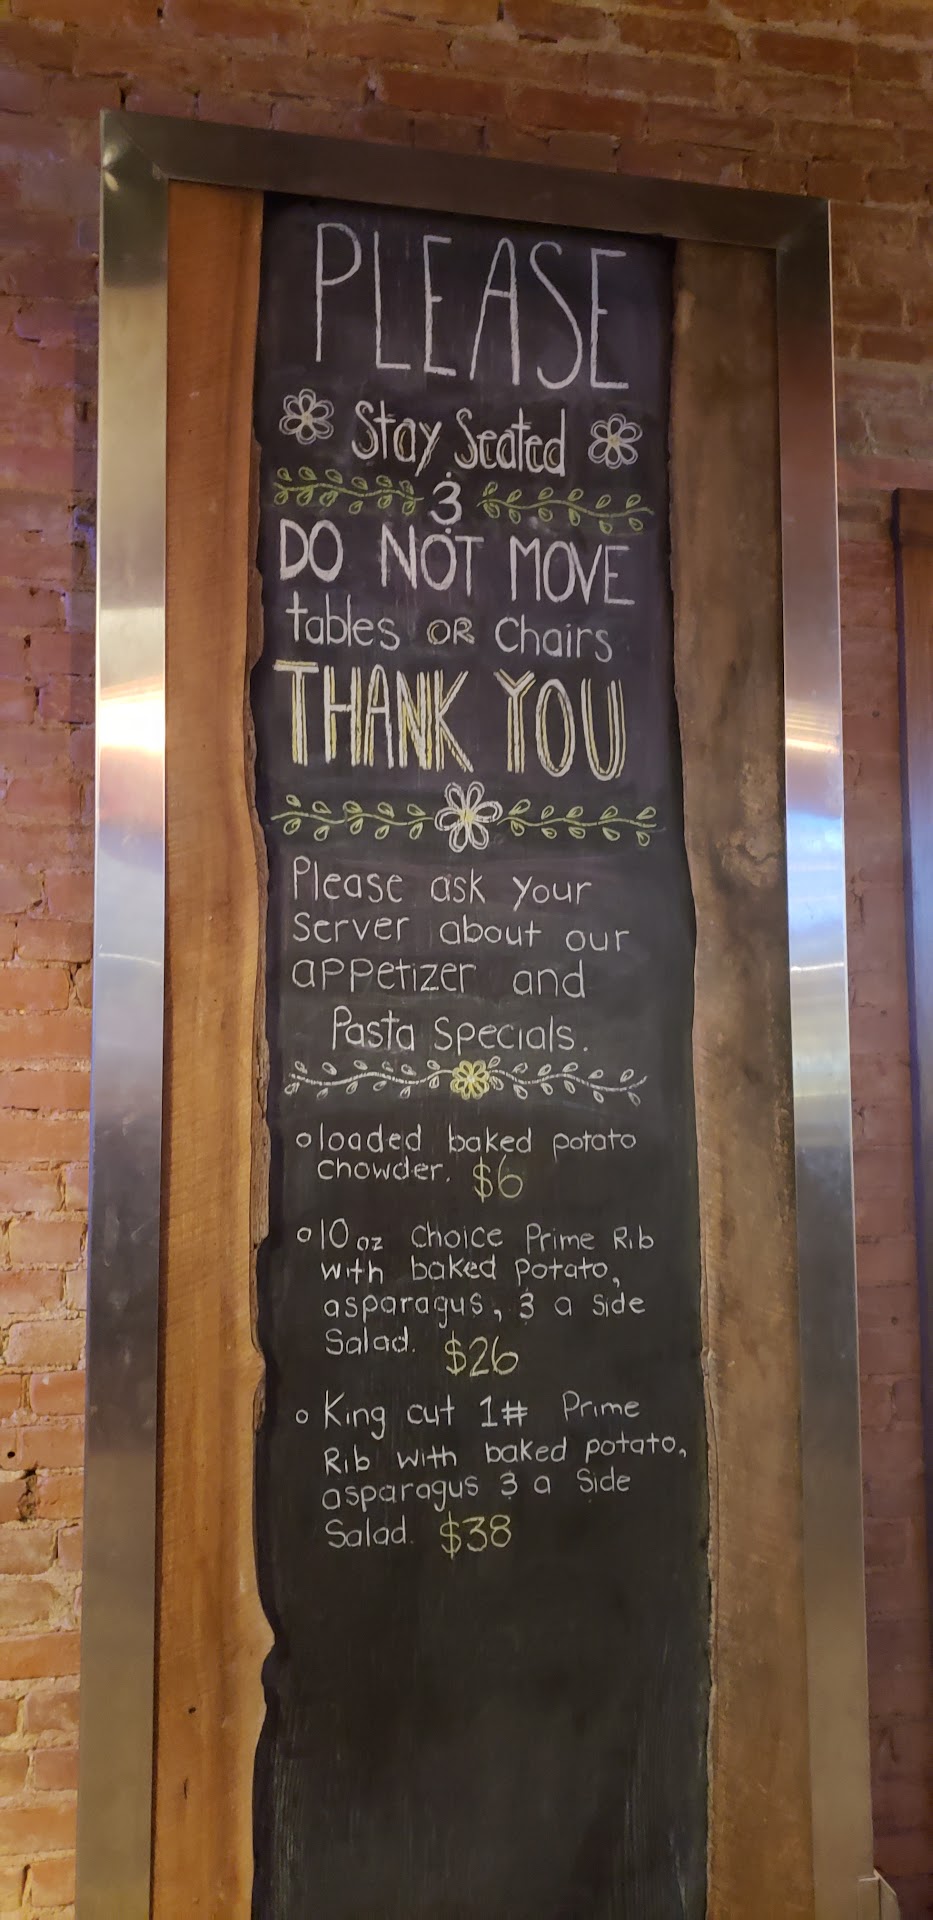 PLEASE
Stay Seated
&
DO NOT MOVE
tables OR Chairs
THANK YOU
Please ask your
server about our
appetizer and
Pasta Specials.
loaded baked potato
chowder. $6
10 oz Choice Prime Rib
with baked Potato,
asparagus, & a Side
Salad. $26
King cut 1# Prime
Rib with baked potato,
asparagus & a Side
Salad. $38